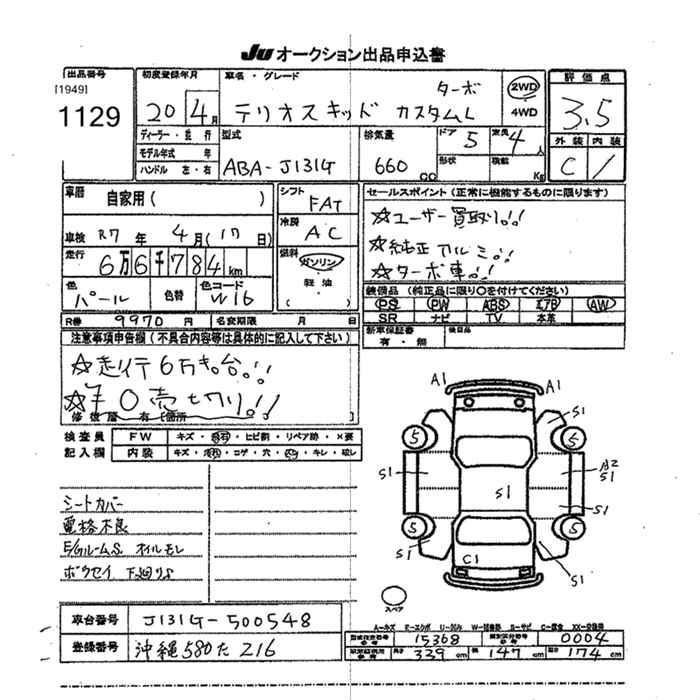 JU オークション出品申込書
出品番号
[1949]
1129
初度登録年月
20 4月
車名・グレード
テリオスキッド カスタムL ターボ
2WD
4WD
評価点
3.5
外装 内装
C /
ディーラー・並行
モデル年式 年
ハンドル 左・右
型式
ABA-J131G
排気量
660 CC
ドア 5
形状
定員 4人
積載 Kg
車歴
自家用( )
車検 R7年 4月(17日)
走行
6万6千784km
色
パール
色替
色コード
W16
シフト
FAT
冷房
AC
燃料
ガソリン
軽油
( )
セールスポイント(正常に機能するものに限ります)
☆ユーザー買取り!!
☆純正アルミ!!
☆ターボ車!!
装備品(純正品に限り〇を付けてください)
PS PW ABS エアB AW
SR ナビ TV 本革
新車保証書
有・無
後日品
R券 9970円
名変期限 月 日
注意事項申告欄(不具合内容等は具体的に記入して下さい)
☆走行6万キロ台!!
☆¥0売切り!!
修復歴 有[箇所 ]
検査員 FW キズ・飛石・ヒビ割・リペア跡・×要
記入欄 内装
シートカバー
電格不良
E/Gルーム.S オイルモレ
ボウセイ 下廻りS
A1 A1
S1
5 5
S1
A2
S1
S1
S1
5 5
S1
C1
S1
スペア
A-キズ E-エクボ
車台番号 J131G-500548
登録番号 沖縄580た216
型式指定番号 15368
類別区分番号 0004
長さ 339cm 幅 147cm 高さ 174cm